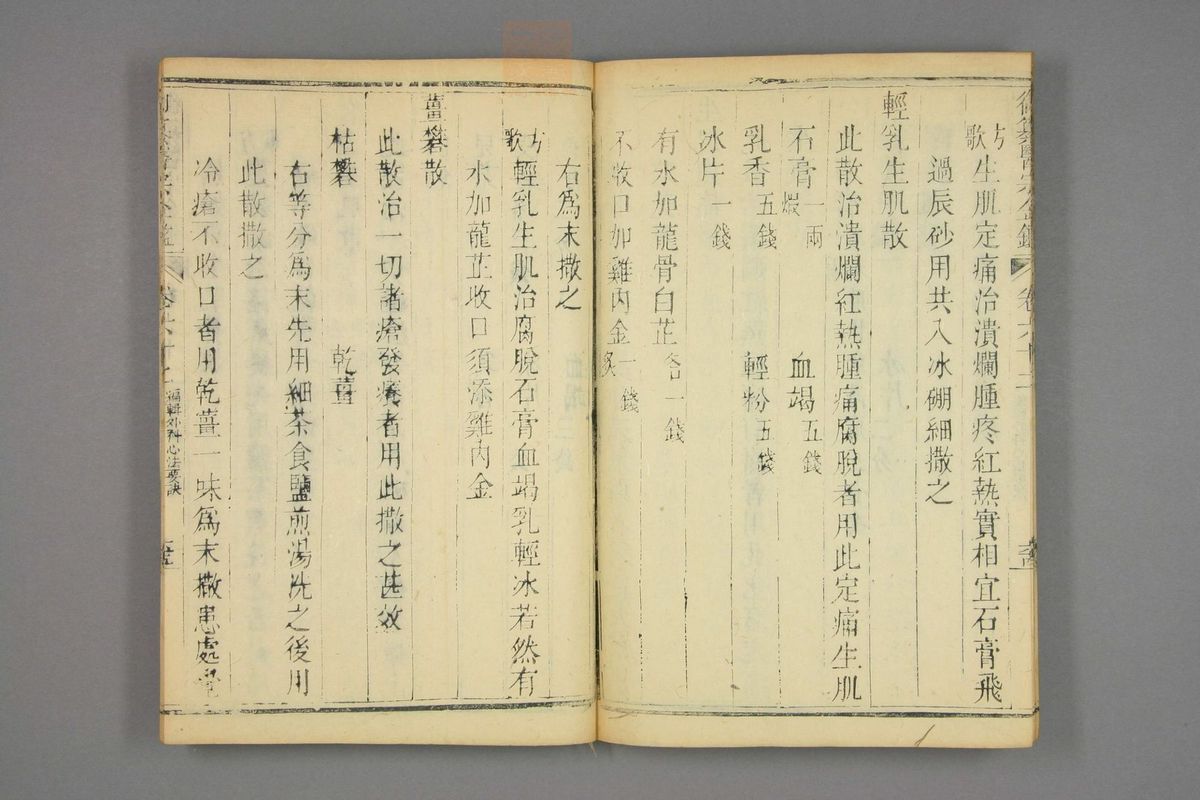 方歌生肌定痛治潰爛腫疼紅熱實相宜石膏飛
過辰砂用共入冰硼細撒之
輕乳生肌散
此散治潰爛紅熱腫痛腐脫者用此定痛生肌
石膏煅一兩 血竭五錢
乳香五錢 輕粉五錢
冰片一錢
有水加龍骨白芷各一錢
不收口加雞內金炙一錢
右爲末撒之
方歌輕乳生肌治腐脫石膏血竭乳輕冰若然有
水加龍芷收口須添雞內金
薑礬散
此散治一切諸瘡發癢者用此撒之甚效
枯礬 乾薑
右等分爲末先用細茶食鹽煎湯洗之後用
此散撒之
冷瘡不收口者用乾薑一味爲末撒患處覺
編輯外科心法要訣